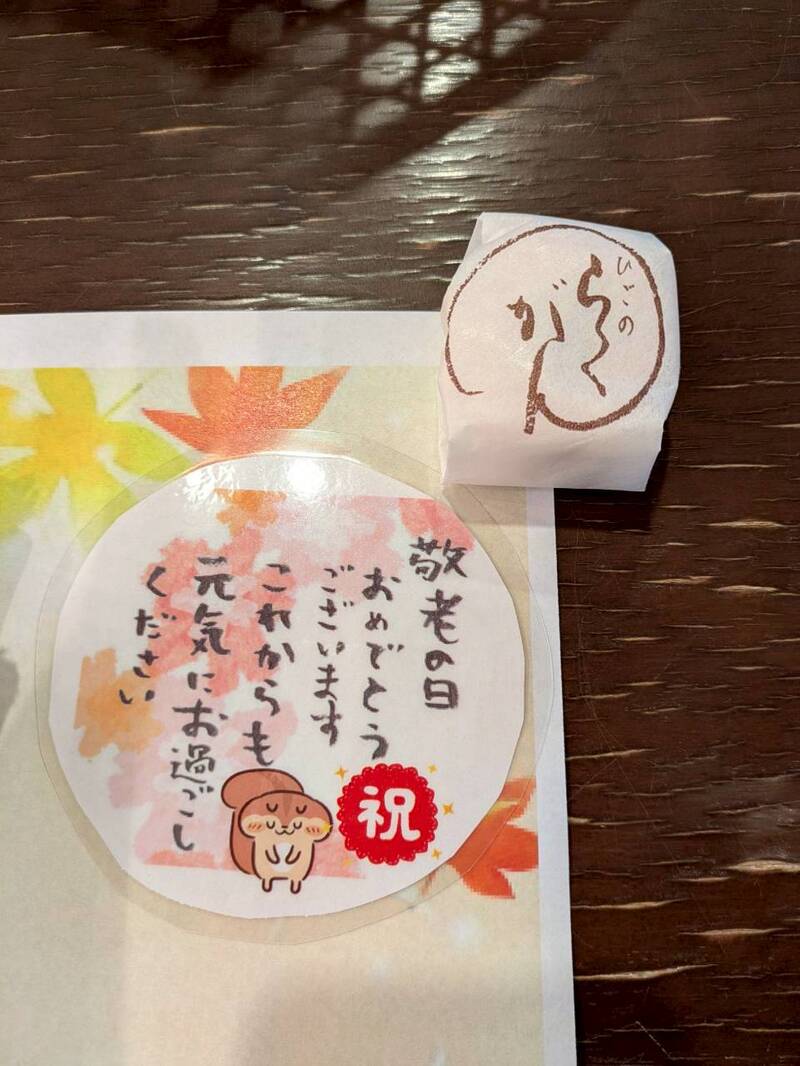 敬老の日
おめでとう
ございます
これからも
元気にお過ごし
ください
祝
らく
がん